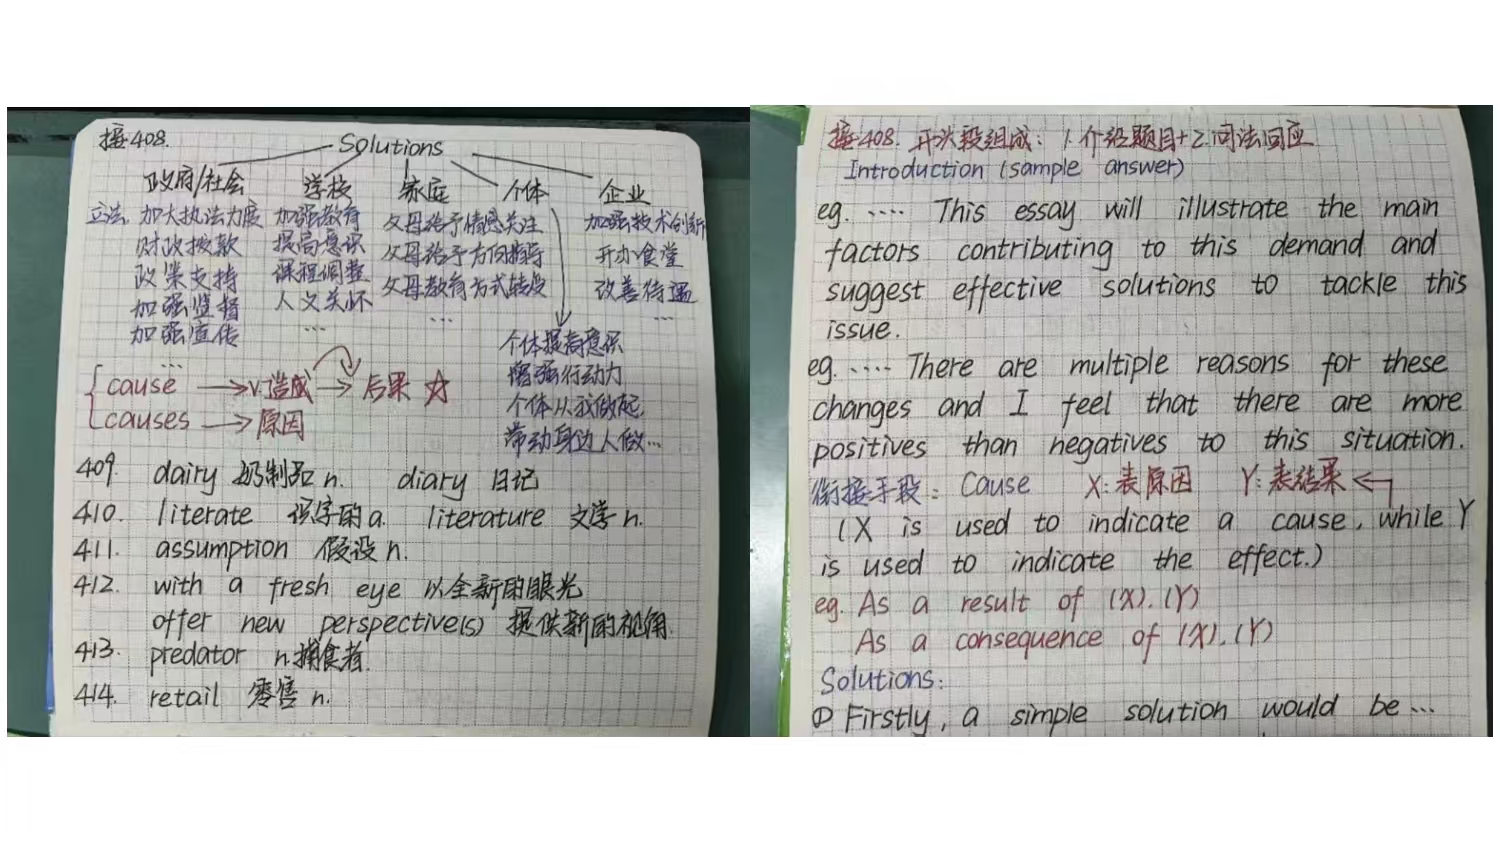 接408.
Solutions
政府/社会 学校 家庭 个体 企业
立法 加大执法力度 加强教育 父母给予情感关注 加强技术创新
财政拨款 提高意识 父母给予方向指导 开办食堂
政策支持 课程调整 父母教育方式转变 改善待遇
加强监督 人文关怀 ... ...
加强宣传 ...
...
个体提高意识
增强行动力
个体从我做起
带动身边人做...
cause → v.造成 → 后果 ☆
causes → 原因
409. dairy 奶制品 n. diary 日记
410. literate 识字的 a. literature 文学 n.
411. assumption 假设 n.
412. with a fresh eye 以全新的眼光
offer new perspective(s) 提供新的视角.
413. predator n.捕食者.
414. retail 零售 n.
接408. 开头段组成: 1.介绍题目+2.问法回应
Introduction (sample answer)
eg. .... This essay will illustrate the main
factors contributing to this demand and
suggest effective solutions to tackle this
issue.
eg. .... There are multiple reasons for these
changes and I feel that there are more
positives than negatives to this situation.
衔接手段: Cause X:表原因 Y:表结果
(X is used to indicate a cause, while Y
is used to indicate the effect.)
eg. As a result of (X). (Y)
As a consequence of (X). (Y)
Solutions:
① Firstly, a simple solution would be ...